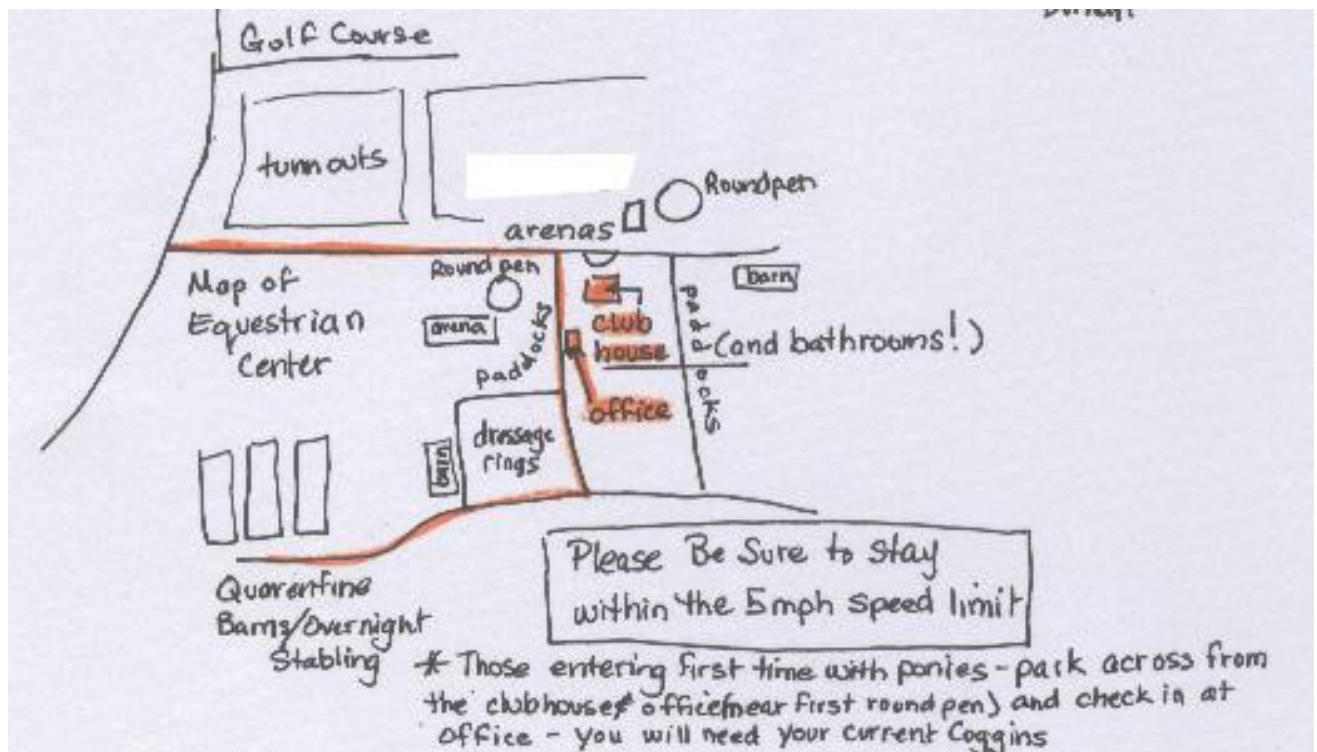 Golf Course
turnouts
Roundpen
arenas
Round pen
barn
Map of
Equestrian
Center
arena
paddocks
club
house
paddocks
(and bathrooms!)
office
dressage
rings
barn
Quarentine
Barns/Overnight
Stabling
Please Be Sure to stay
within the 5mph speed limit
* Those entering first time with ponies - park across from
the clubhouse office (near first round pen) and check in at
office - you will need your current Coggins